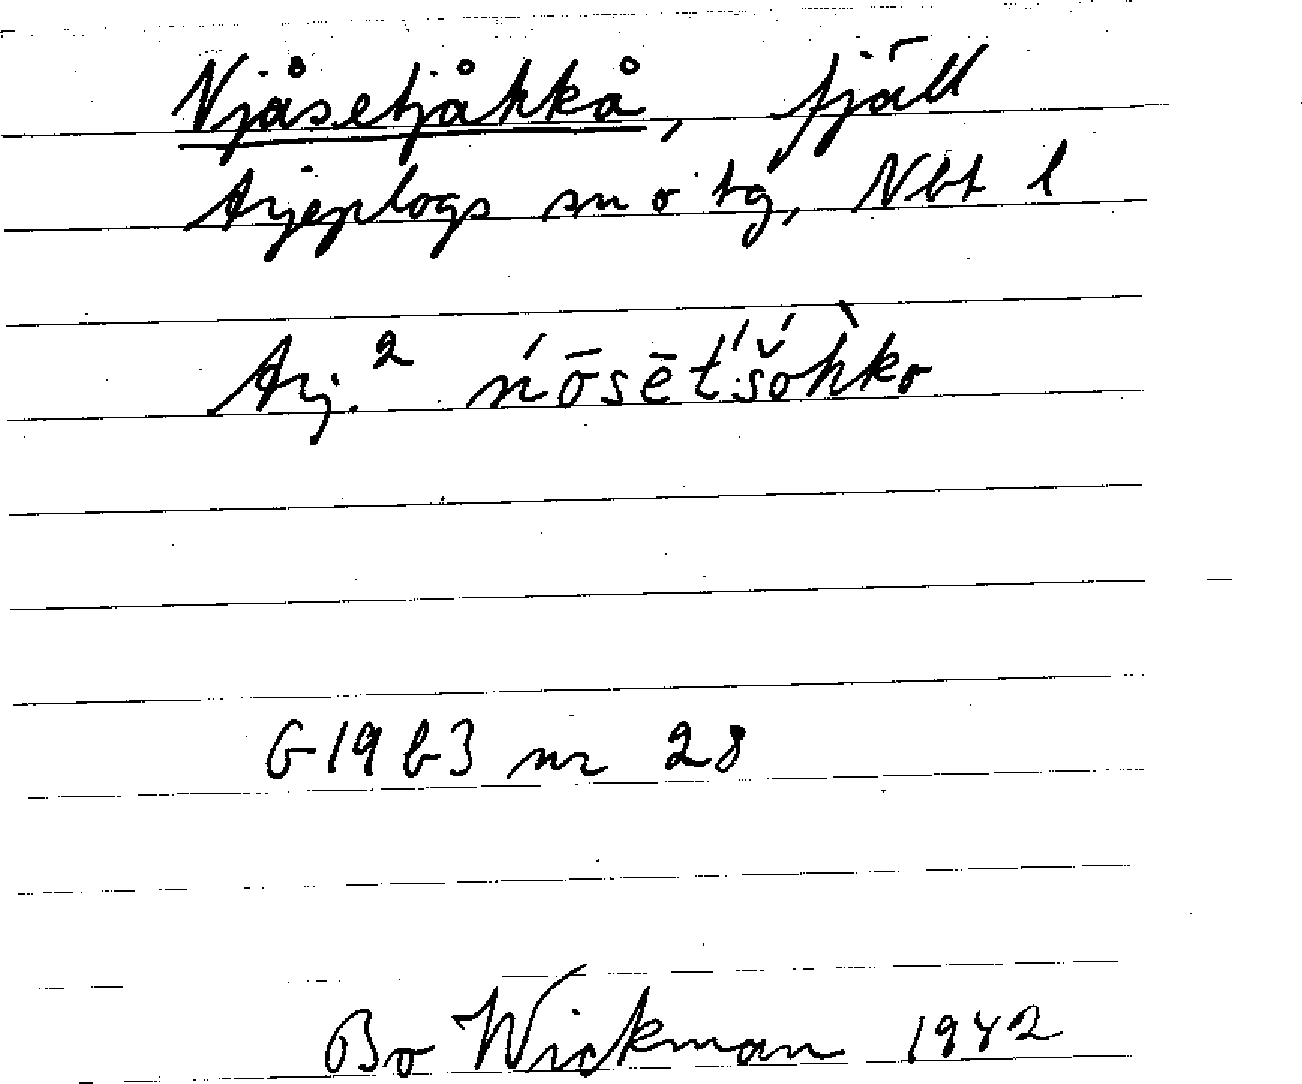 Njåsetjåkkå, fjäll
Arjeplogs sn o tg, Nbt l
Arj.² ńōsēt́'šóh̀ko
G19b3 nr 28
Bo Wickman 1942